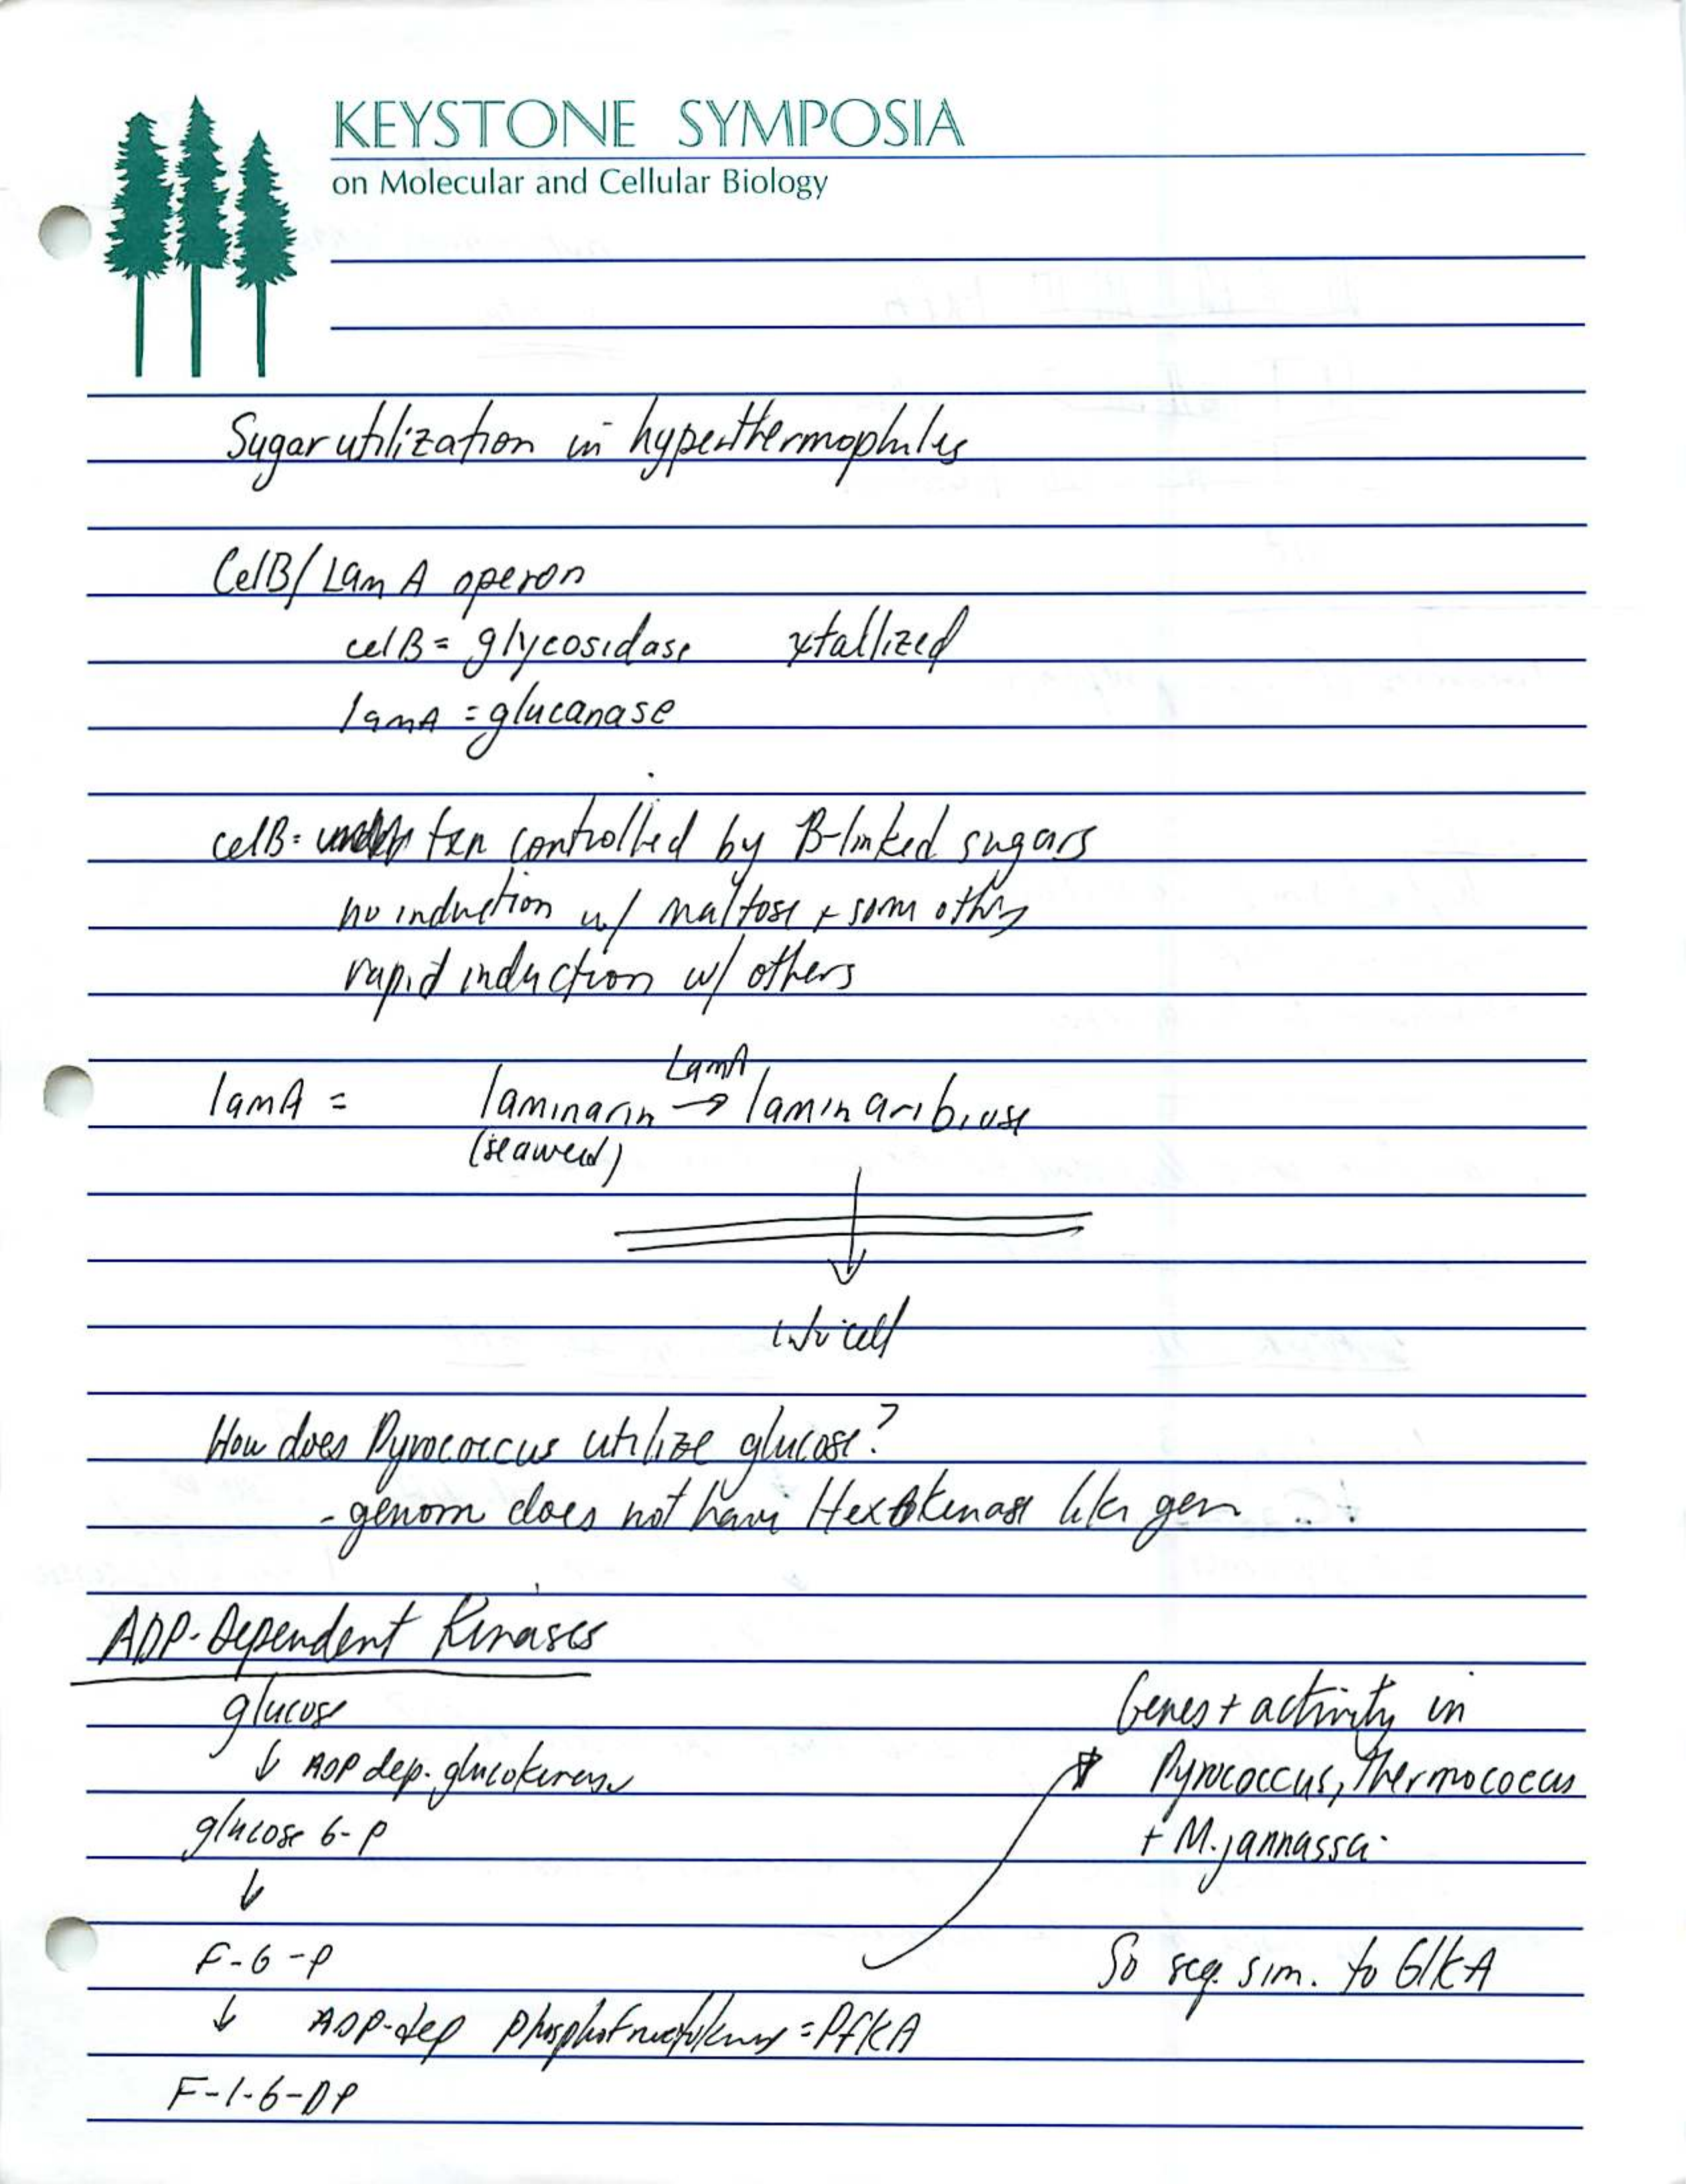 KEYSTONE SYMPOSIA
on Molecular and Cellular Biology
Sugar utilization in hyperthermophiles
CelB/LamA operon
celB = glycosidase xtallized
lamA = glucanase
celB: txn controlled by B-linked sugars
no induction w/ maltose + some others
rapid induction w/ others
LamA
lamA = laminarin → laminaribiose
(seaweed)
↓
into cell
How does Pyrococcus utilize glucose?
- genom does not have Hexokinase like gen
ADP-Dependent Kinases
glucose
↓ ADP dep. glucokinase
glucose 6-P
↓
F-6-P
↓ ADP-dep phosphofructokinase = PfKA
F-1-6-DP
Genes + activity in
Pyrococcus, Thermococcus
+ M. jannassci
So seq. sim. to GlKA